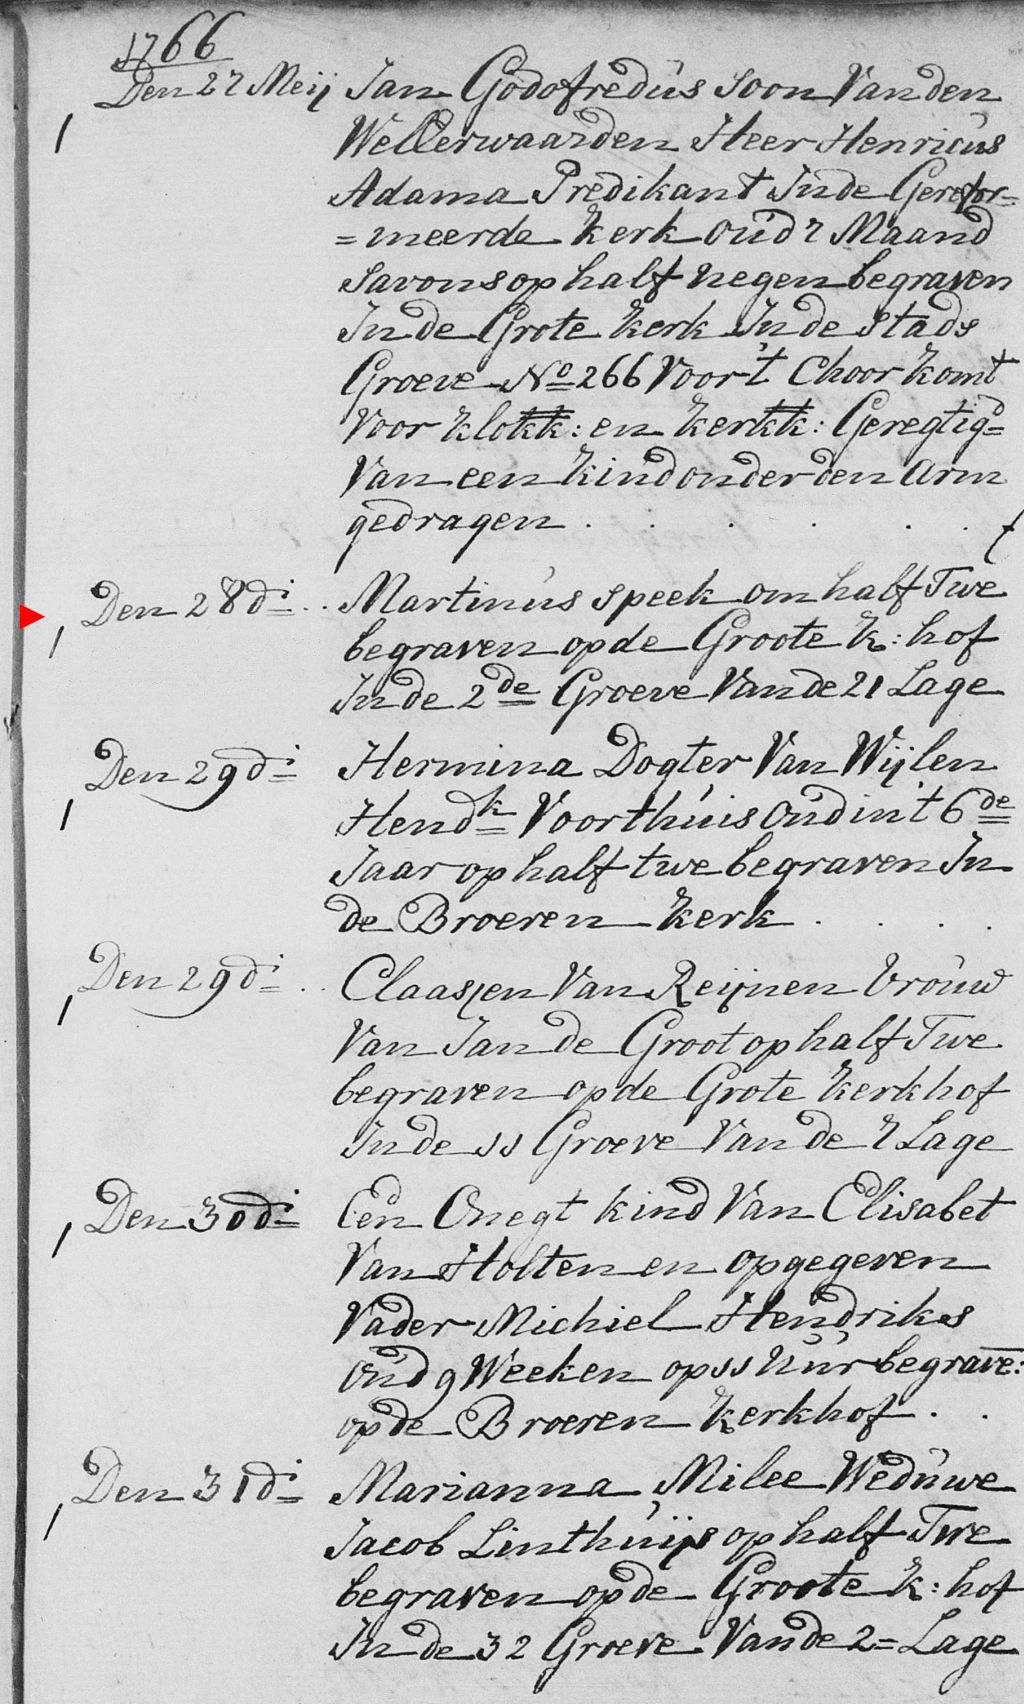 1766
Den 27 Meij Jan Godofredus Soon Van den
Wellerwaarden Heer Henricus
Adama Predikant In de Gerefor=
=meerde Kerk oud 1 Maand
savons op half negen begraven
In de Grote Kerk In de Stads
Groeve No 266 Voor 't Choor komt
Voor klokk: en kerkk: Geregtigd=
Van een kind onder den Arm
gedragen . . . . . .
Den 28 di . . Martinus Speek om half Twe
begraven op de Groote K: hof
In de 2de Groeve Van de 21 Lage
Den 29 di Hermina Dogter Van Wijlen
Hendk Voorthuis Oud in 't 6de
Jaar op half twe begraven In
de Broeren kerk . . .
Den 29 di . . Claasjen Van Reijnen Vrouw
Van Jan de Groot op half Twe
begraven op de Grote kerkhof
In de 11 Groeve Van de 1 Lage
Den 30 di Een Onegt kind Van Elisabet
Van Holten en opgegeven
Vader Michiel Hendriks
Oud 9 Weeken op 11 Uur begrave:
op de Broeren kerkhof . .
Den 31 di Marianna Milee Weduwe
Jacob Linthuijs op half Twe
begraven op de Groote K: hof
In de 32 Groeve Van de 2= Lage